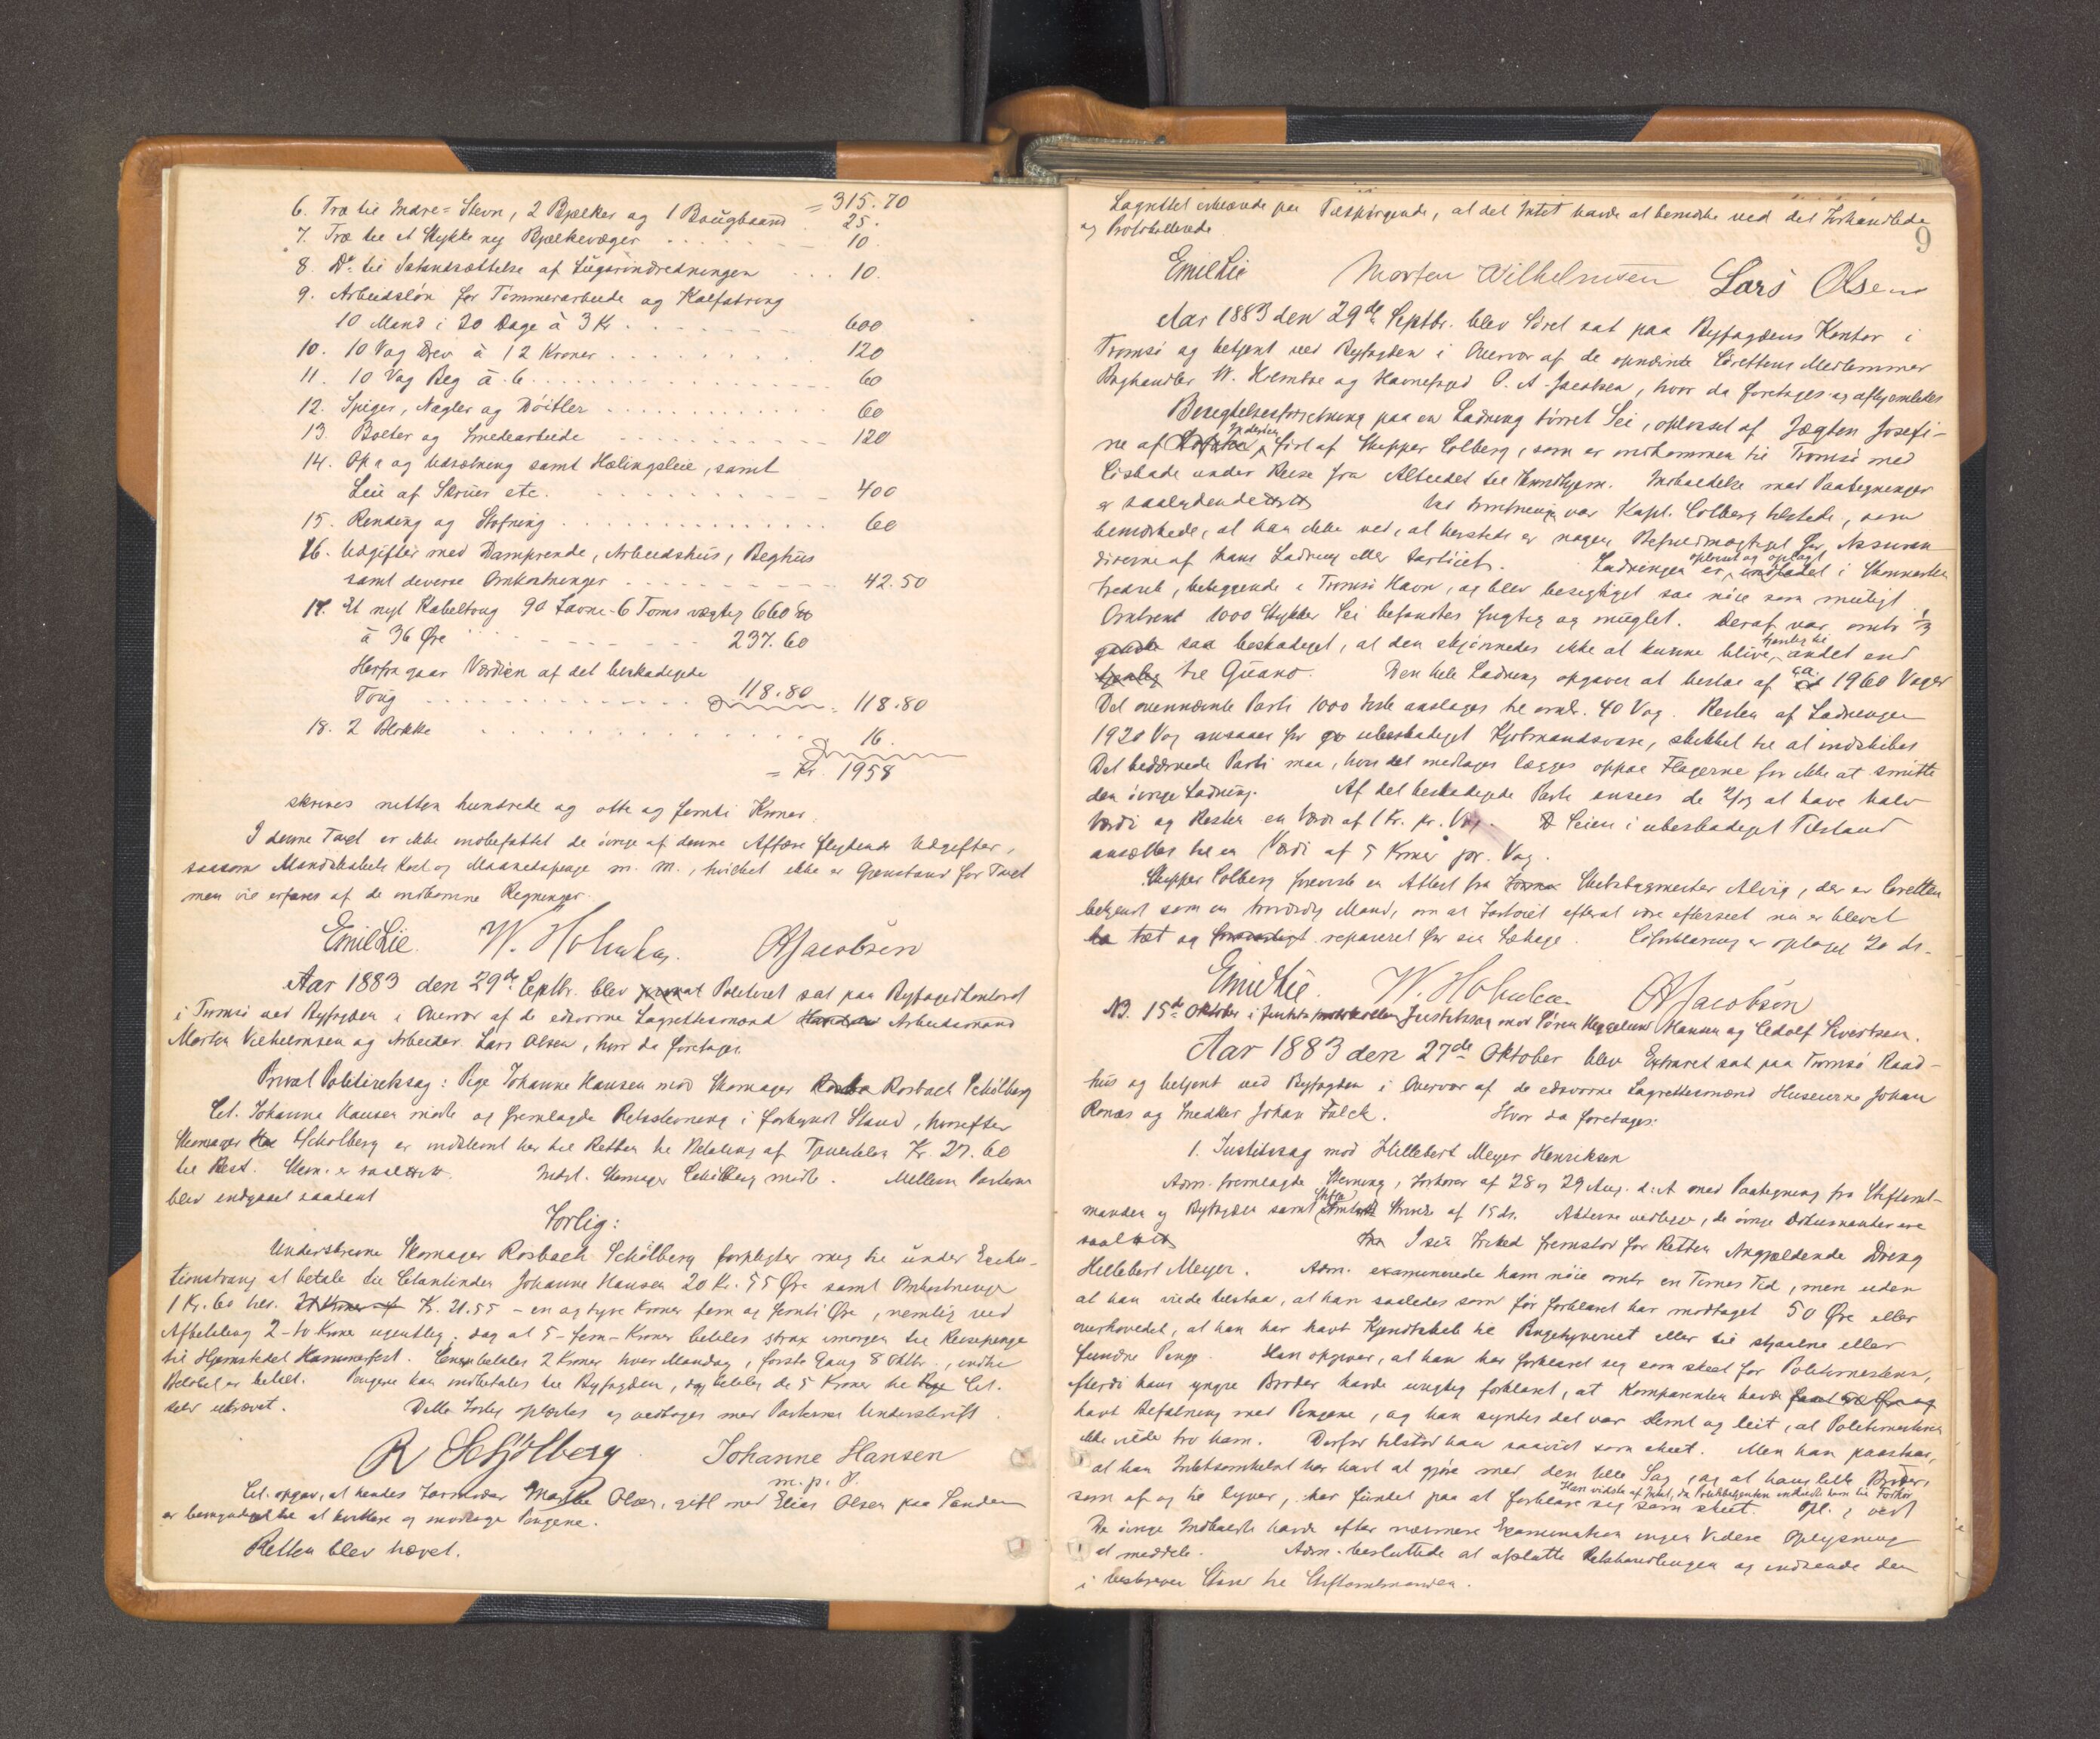 = 315.70
6. Træ til Indre=Stevn, 2 Bjælker og 1 Bougbaand 25.
7. Træ til et Stykke ny Bjælkevæger 10.
8. Do. til Istandsættelse af Lugarindredningen 10.
9. Arbeidsløn for Tømmerarbeide og Kalfatring
10 Mand i 20 Dage à 3 Kr. 600
10. 10 Vog Drev à 12 Kroner 120
11. 10 Vog Beg à 6 60
12. Spiger, Nagler og Döitler 60
13. Bolter og Smedearbeide 120
14. Op og Udsætning samt Halingsleie, samt
Leie af Skruer etc. 400
15. Rending og Stofning 60
16. Udgifter med Damprende, Arbeidshus, Beghus
samt diverse Omkostninger 42.50
17. Et nyt Kabeltoug 90 Favne 6 Toms vægtig 660
à 36 Øre 237.60
Herfra gaar Værdien af det beskadigede
Toug 118.80 = 118.80
18. 2 Blokke 16.
= Kr. 1958
skrives nitten hundrede og otte og femti Kroner.
I denne Taxt er ikke indbefattet de övrige af denne Affære flydende Udgifter,
saasom Mandskabets Kost og Maanedspenge m. m., hvilket ikke er Gjenstand for Taxt
men vil erfares af de indkomne Regninger.
Emil Lie. W. Holmboe. OAJacobsen
Aar 1883 den 29de Septbr. blev privat Politiret sat paa Byfogedkontoret
i Tromsö ved Byfogden i Overvær af de edsvorne Lagrettesmænd Arbeidsmand
Morten Vilhelmsen og Arbeider Lars Olsen, hvor da foretages
Privat Politiretssag: Pige Johanne Hansen mod Skomager Rosbach Schölberg
Cit. Johanne Hansen mödte og fremlagde Retsstevning i forkyndt Stand, hvorefter
Skomager Schölberg er indstevnt her til Retten til Betaling af Kr. 27.60
til Rest. Stevn. er saal. Indst. Skomager Schölberg mödte. Mellem Parterne
blev indgaaet saadant
Forlig:
Underskrevne Skomager Rosbach Schölberg forpligter mig til under Exeku-
tionstvang at betale til Citantinden Johanne Hansen 20 Kr. 55 Øre samt Omkostninger
1 Kr. 60 Kr. 21.55 - en og tyve Kroner fem og femti Øre, nemlig ved
Afbetaling 2 - to Kroner ugentlig; dog at 5 - fem - Kroner betales strax imorgen til Reisepenge
til Hjemstedet Hammerfest. Senere betales 2 Kroner hver Mandag, förste Gang 8 Oktbr., indtil
Belöbet er betalt. Pengene kan indbetales til Byfogden, dog betales de 5 Kroner til Cit.
selv ukrævet. Dette Forlig oplæstes og vedtoges med Parternes Underskrift.
R Schjölberg Johanne Hansen
m. p. P.
Cit. opgav, at hendes Marthe Olsen, gift med Elias Olsen paa Sanden
er bemyndiget til at kvittere og modtage Pengene.
Retten blev hævet.
9
Lagrettet erklærede paa Tilspörgende, at det Intet havde at bemærke ved det Forhandlede
og Protokollerede.
Emil Lie Morten Wilhelmsen Lars Olsen
Aar 1883 den 29de Septbr. blev Söret sat paa Byfogdens Kontor i
Tromsö og betjent ved Byfogden i Overvær af de opnævnte Sörettens Medlemmer
Boghandler W. Holmboe og Havnefoged O. A. Jacobsen, hvor da foretages og afhjemledes
Besigtelsesforretning paa en Ladning törret Sei, oplosset af Jægten Josefi-
ne af fört af Skipper Colberg, som er indkommen til Tromsö med
Söskade under Reise fra Alteidet til Trondhjem. Indstevn. med Paategninger
er saalydende Ved Forretningen var Kapt. Colberg tilstede, som
bemærkede, at han ikke ved, at herstedes er nogen Befuldmægtiget for Assuran-
dörerne af hans Ladning eller Fartöiet. Ladningen er oplosset og oplagt i Skonnerten
Fredrik, beliggende i Tromsö Havn, og blev besigtiget saa nöie som muligt.
Omtrent 1000 Stykker Sei befandtes fugtig og muglet. Deraf var omtr. 1/3
saa beskadiget, at den skjönnedes ikke at kunne blive tjenlig til andet end
til Guano. Den hele Ladning opgaves at bestaa af ca. 1960 Voger
Det ovennævnte Parti 1000 Fiske anslages til omtr. 40 Vog. Resten af Ladningen
1920 Vog ansaaes for ubeskadiget Kjöbmandsvare, skikket til at indskibes
Det bedærvede Parti maa, hvis det medtages lægges oppaa Flagerne for ikke at smitte
den övrige Ladning. Af det beskadigede Parti ansees de 2/3 at have halv
Værdi og Resten en Værdi af 1 Kr. pr. Vog. Seien i ubeskadiget Tilstand
ansættes til en Værdi af 5 Kroner pr. Vog.
Skipper Colberg foreviste en Attest fra Skibsbygmester Alvig, der er Söretten
bekjendt som en troværdig Mand, om at Fartöiet efterat være efterseet nu er blevet
tæt og repareret for sin Lækage. Söforklaring er optaget 20 ds.
Emil Lie. W. Holmboe OAJacobsen
NB. 15de Oktober i Justitssag mod Sören Hansen og Sivertsen.
Aar 1883 den 27de Oktober blev Extraret sat paa Tromsö Raad-
hus og betjent ved Byfogden i Overvær af de edsvorne Lagrettesmænd Huseierne Johan
Ronæs og Snedker Johan Falck. Hvor da foretages:
1. Justitssag mod Hillebert Meyer Henriksen
Adm. fremlagde Stevning, Forhörer af 28 og 29 Aug. d. A. med Paategning fra Stiftamt-
manden og Byfogden samt Skrivelse af 15 ds. Akterne vedlægges, de övrige Dokumenter ere
saal. I sin Frihed fremstod for Retten Angjældende Dreng
Hillebert Meyer. Adm. examinerede ham nöie omtr. en Times Tid, men uden
at han vilde tilstaa, at han saaledes som för forklaret har modtaget 50 Øre eller
overhovedet, at han har havt Kjendskab til Pengetyveriet eller til stjaalne eller
fundne Penge. Han opgiver, at han har forklaret sig som skeet for Politimesteren,
efterdi hans yngre Broder havde urigtig forklaret, at Kompanniten havde
havt Befatning med Pengene, og han syntes det var slemt og leit, at Politimesteren
ikke vilde tro ham. Derfor tilstod han saavidt som skeet. Men han paastaar,
at han Intetsomhelst har havt at gjöre med den hele Sag, og at hans lille Broder,
som af og til lyver, har fundet paa at forklare sig som skeet. Opl. & vedt.
De övrige Indkaldte havde efter nærmere Examination ingen Videre Oplysning
at meddele. Adm. besluttede at afslutte Retshandlingen og indsende den
i beskreven Stand til Stiftamtmanden.